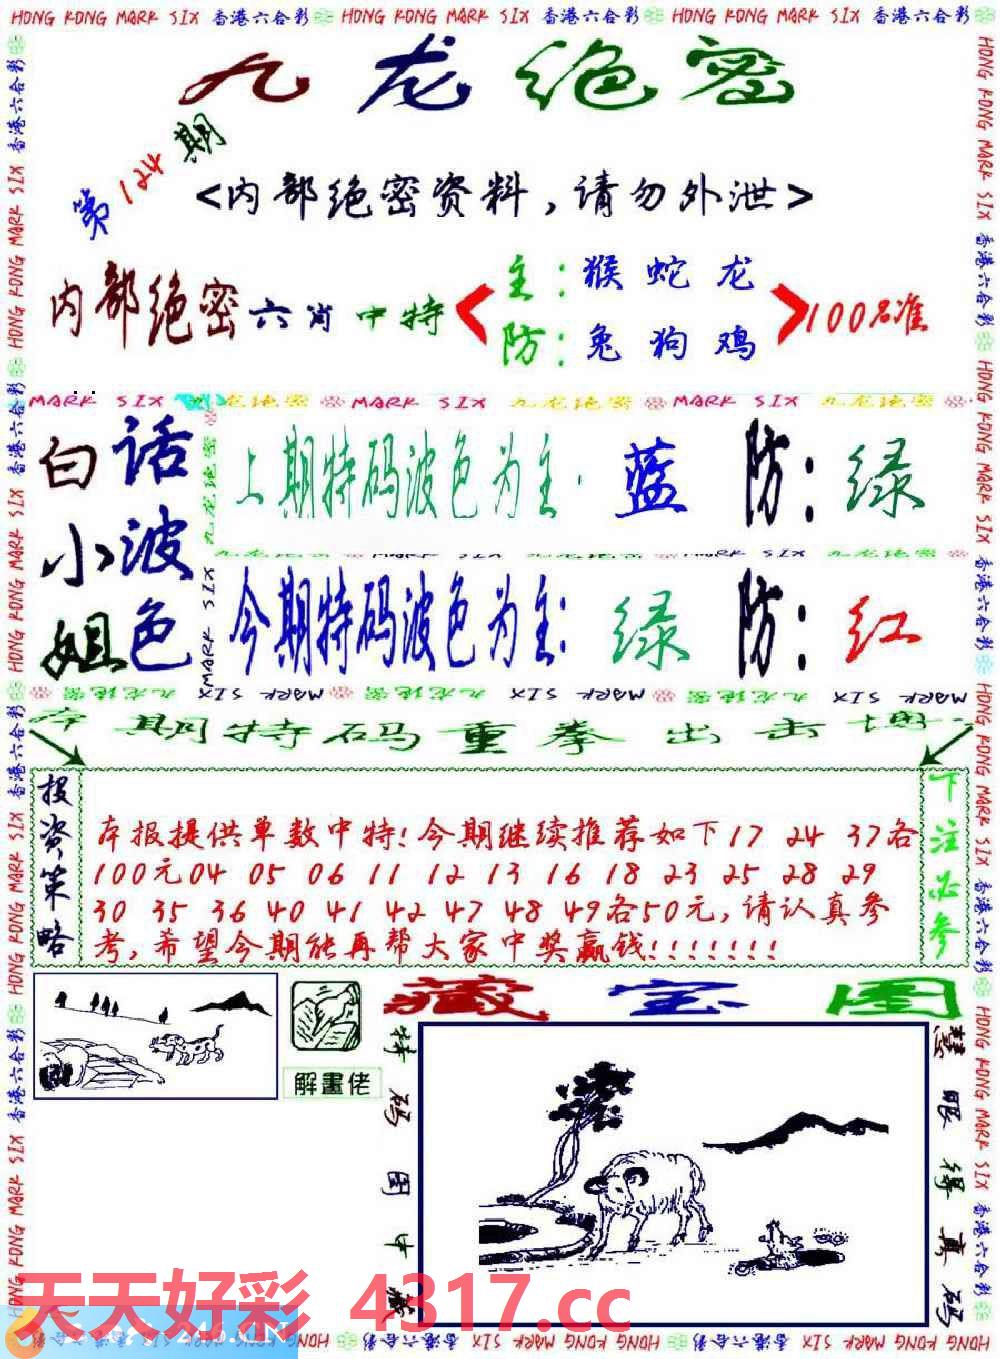 HONG KONG MARK SIX 香港六合彩 HONG KONG MARK SIX 香港六合彩 HONG KONG MARK SIX 香港六合彩
九龙绝密
第124期
<内部绝密资料,请勿外泄>
内部绝密六肖中特
主:猴蛇龙
防:兔狗鸡
100%准
MARK SIX 九龙绝密 MARK SIX 九龙绝密 MARK SIX 九龙绝密
白小姐
话波色
上期特码波色为主:蓝 防:绿
今期特码波色为主:绿 防:红
本期特码重拳出击
投资策略
本报提供单数中特!今期继续推荐如下17 24 37各
100元04 05 06 11 12 13 16 18 23 25 28 29
30 35 36 40 41 42 47 48 49各50元,请认真参
考,希望今期能再帮大家中奖赢钱!!!!!!!
下注必参
藏宝图
解畫佬
特码图中藏
慧眼得真码
天天好彩 4317.cc
246.CN